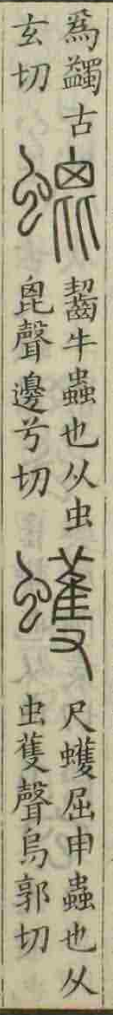 爲蠲古
玄切
螕
齧牛蟲也从虫
𣬉聲邊兮切
蠖
尺蠖屈申蟲也从
虫蒦聲烏郭切